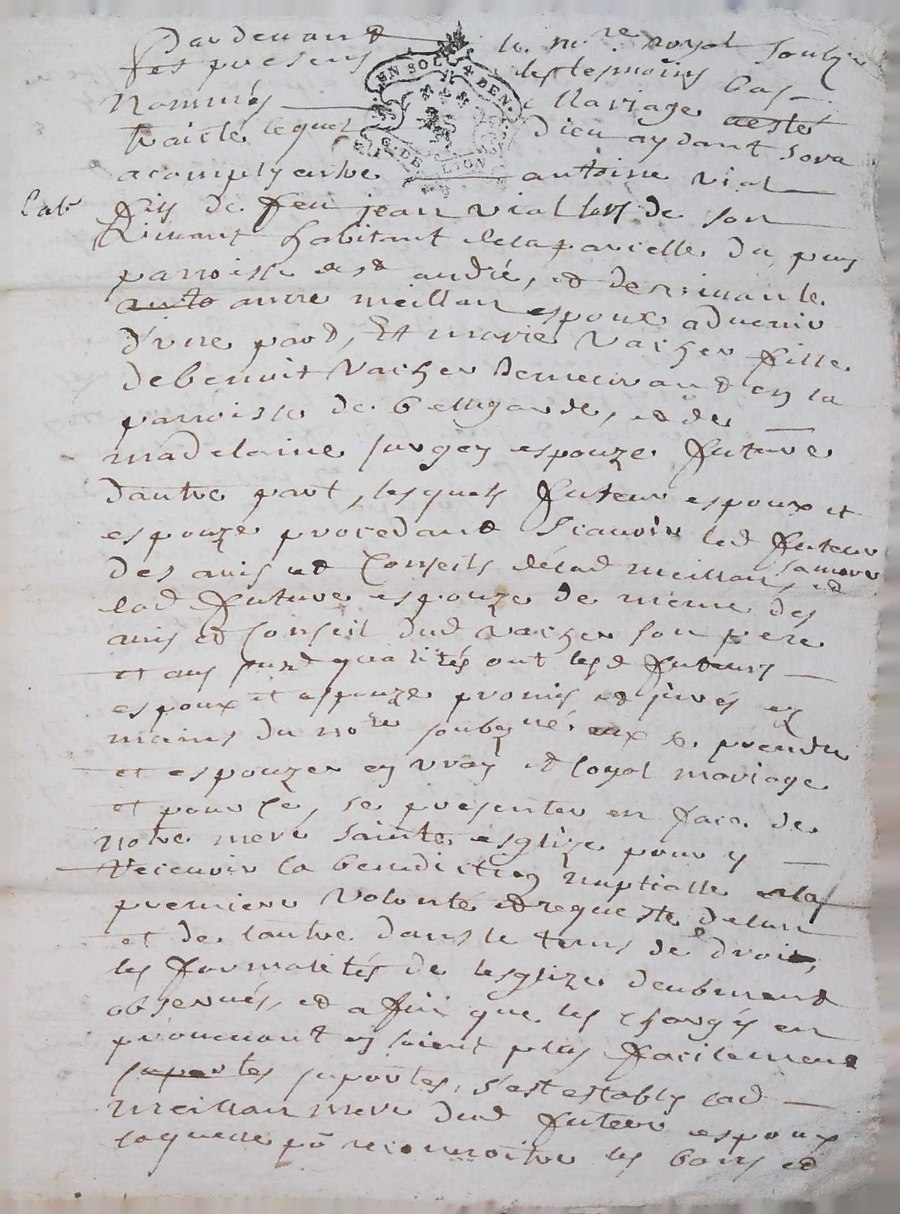 Pardevant le nre royal soubze
ses presens les tesmoins bas
nommés Mariage aesté
traicté lequel Dieu aydant sera
acomply entre antoine vial
fis de feu jean vial lors de son
vivant habitant de la parcelle du puy
parroisse de st andré, et de
anne meillan espoux aduenir
d'vne part, Et marie Vacher fille
de benoit Vacher demeurant en la
parroisse de bellegarde, et de
madelaine espouze future
dautre part, lesquels futeur espoux et
espouze procedant scauoir led futeur
des auis et Conseils de lad meillan sa mere et
lad future espouze de meme des
auis et Conseil dud vacher son pere
et aus qualités ont lesd futeurs
espoux et espouze promis et jurés ez
mains du nore soubzné se prendre
et espouzer en vray et loyal mariage
et pour ce, se presenter en face de
notre mere sainte esglize pour y
recevoir la benediction nuptialle a la
premiere volonté et requeste de lun
et de lautre dans le tems de droit,
les formalités de lesglize deubment
obserués, et afin que les charges en
prouenant soient plus facilement
suportes, s'est estably lad
meillan mere dud futeur espoux
laquelle pr reconnoitre les bons et
EN SOL 4 DEN.
G. DE LION